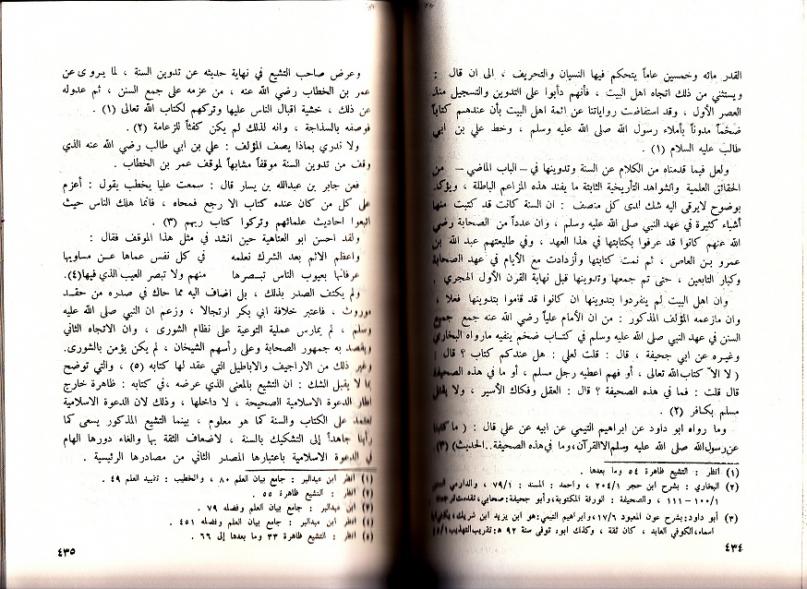 القدر مائه وخمسين عاماً يتحكم فيها النسيان والتحريف ، الى ان قال :
ويستثني من ذلك اتجاه اهل البيت ، فأنهم دأبوا على التدوين والتسجيل منذ
العصر الأول ، وقد استفاضت رواياتنا عن ائمة اهل البيت بأن عندهم كتاباً
ضخماً مدوناً بأملاء رسول الله صلى الله عليه وسلم ، وخط علي بن ابي
طالب عليه السلام (١) .
ولعل فيما قدمناه من الكلام عن السنة وتدوينها في – الباب الماضي – من
الحقائق العلمية والشواهد التأريخية الثابتة ما يفند هذه المزاعم الباطلة ، ويؤكد
بوضوح لايرقى اليه شك لدى كل منصف : ان السنة كانت قد كتبت منها
أشياء كثيرة في عهد النبي صلى الله عليه وسلم ، وان عدداً من الصحابة رضي
الله عنهم كانوا قد عرفوا بكتابتها في هذا العهد ، وفي طليعتهم عبد الله بن
عمرو بن العاص ، ثم نمت كتابتها وأزدادت مع الأيام في عهد الصحابة
وكبار التابعين ، حتى تم جمعها وتدوينها قبل نهاية القرن الأول الهجري .
وان اهل البيت لم ينفردوا بتدوينها ان كانوا قد قاموا بتدوينها فعلا ،
وان مازعمه المؤلف المذكور : من ان الأمام علياً رضي الله عنه جمع جميع
السنن في عهد النبي صلى الله عليه وسلم في كتاب ضخم ينفيه مارواه البخاري
وغيره عن ابي جحيفة ، قال : قلت لعلي : هل عندكم كتاب ؟ قال :
( لا الاّ كتاب الله تعالى ، أو فهم اعطيه رجل مسلم ، أو ما في هذه الصحيفة
قال قلت : فما في هذه الصحيفة ؟ قال : العقل وفكاك الأسير ، ولا يقتل
مسلم بكافر (٢) .
وما رواه ابو داود عن ابراهيم التيمي عن ابيه عن علي قال : ( ما كتبنا
عن رسول الله صلى الله عليه وسلم الا القرآن ، وما في هذه الصحيفة .. الحديث) (٣)
(١) أنظر : التشيع ظاهرة ٥٤ وما بعدها .
(٢) البخاري : بشرح ابن حجر ٢٠٤/١ ، واحمد : المسند : ٧٩/١ ، والدارمي
١٠٠/١ – ١١١ ، والصحيفة : الورقة المكتوبة ، وأبو جحيفة : صحابي ،
(٣) أبو داود : بشرح عون المعبود ١٧/٦ ، وابراهيم التيمي : هو ابن يزيد ابن شريك ،
اسماء ، الكوفي العابد ، كان ثقة ، وكذلك ابوه توفي سنة ٩٢ ه : تقريب التهذيب
٤٣٤
وعرض صاحب التشيع في نهاية حديثه عن تدوين السنة ، لما يروى عن
عمر بن الخطاب رضي الله عنه ، من عزمه على جمع السنن ، ثم عدوله
عن ذلك ، خشية اقبال الناس عليها وتركهم لكتاب الله تعالى (١) .
فوصفه بالسذاجة ، وانه لذلك لم يكن كفئاً للزعامة (٢) .
ولا ندري بماذا يصف المؤلف : علي بن ابي طالب رضي الله عنه الذي
وقف من تدوين السنة موقفاً مشابهاً لموقف عمر بن الخطاب .
فعن جابر بن عبدالله بن يسار قال : سمعت علياً يخطب يقول : أعزم
على كل من كان عنده كتاب الا رجع فمحاه ، فانما هلك الناس حيث
اتبعوا احاديث علمائهم وتركوا كتاب ربهم (٣) .
ولقد احسن ابو العتاهية حين انشد في مثل هذا الموقف فقال :
واعظم الاثم بعد الشرك نعلمه في كل نفس عماها عن مساويها
عرفانها بعيوب الناس تبصرها منهم ولا تبصر العيب الذي فيها(٤) .
ولم يكتف الصدر بذلك ، بل اضاف اليه مما حاك في صدره من حقد
موروث ، فاعتبر خلافة ابي بكر ارتجالا ، وزعم ان النبي صلى الله عليه
وسلم ، لم يمارس عملية التوعية على نظام الشورى ، وان الاتجاه الثاني
ويقصد به جمهور الصحابة وعلى رأسهم الشيخان ، لم يكن يؤمن بالشورى.
وغير ذلك من الاراجيف والاباطيل التي عقد لها كتابه (٥) ، والتي توضح
بما لا يقبل الشك : ان التشيع بالمعنى الذي عرضه ، في كتابه : ظاهرة خارج
اطار الدعوة الاسلامية الصحيحة ، لا داخلها ، وذلك لان الدعوة الاسلامية
تعتمد على الكتاب والسنة كما هو معلوم ، بينما التشيع المذكور يسعى كما
رأينا جاهداً إلى التشكيك بالسنة ، لاضعاف الثقة بها والغاء دورها الهام
في الدعوة الاسلامية باعتبارها المصدر الثاني من مصادرها الرئيسية .
(١) أنظر ابن عبدالبر : جامع بيان العلم ٨٠ ، والخطيب : تقييد العلم ٤٩ .
(٢) أنظر : التشيع ظاهرة ٥٥ .
(٣) ابن عبدالبر : جامع بيان العلم وفضله ٧٩ .
(٤) أنظر ابن عبدالبر : جامع بيان العلم وفضله ٤٥١ .
(٥) أنظر : التشيع ظاهرة ٣٣ وما بعدها إلى ٦٦ .
٤٣٥